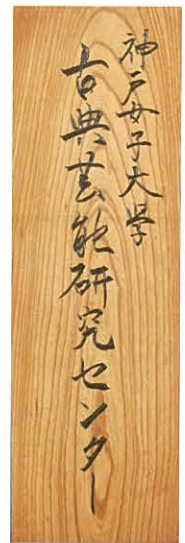 神戸女子大学
古典芸能研究センター